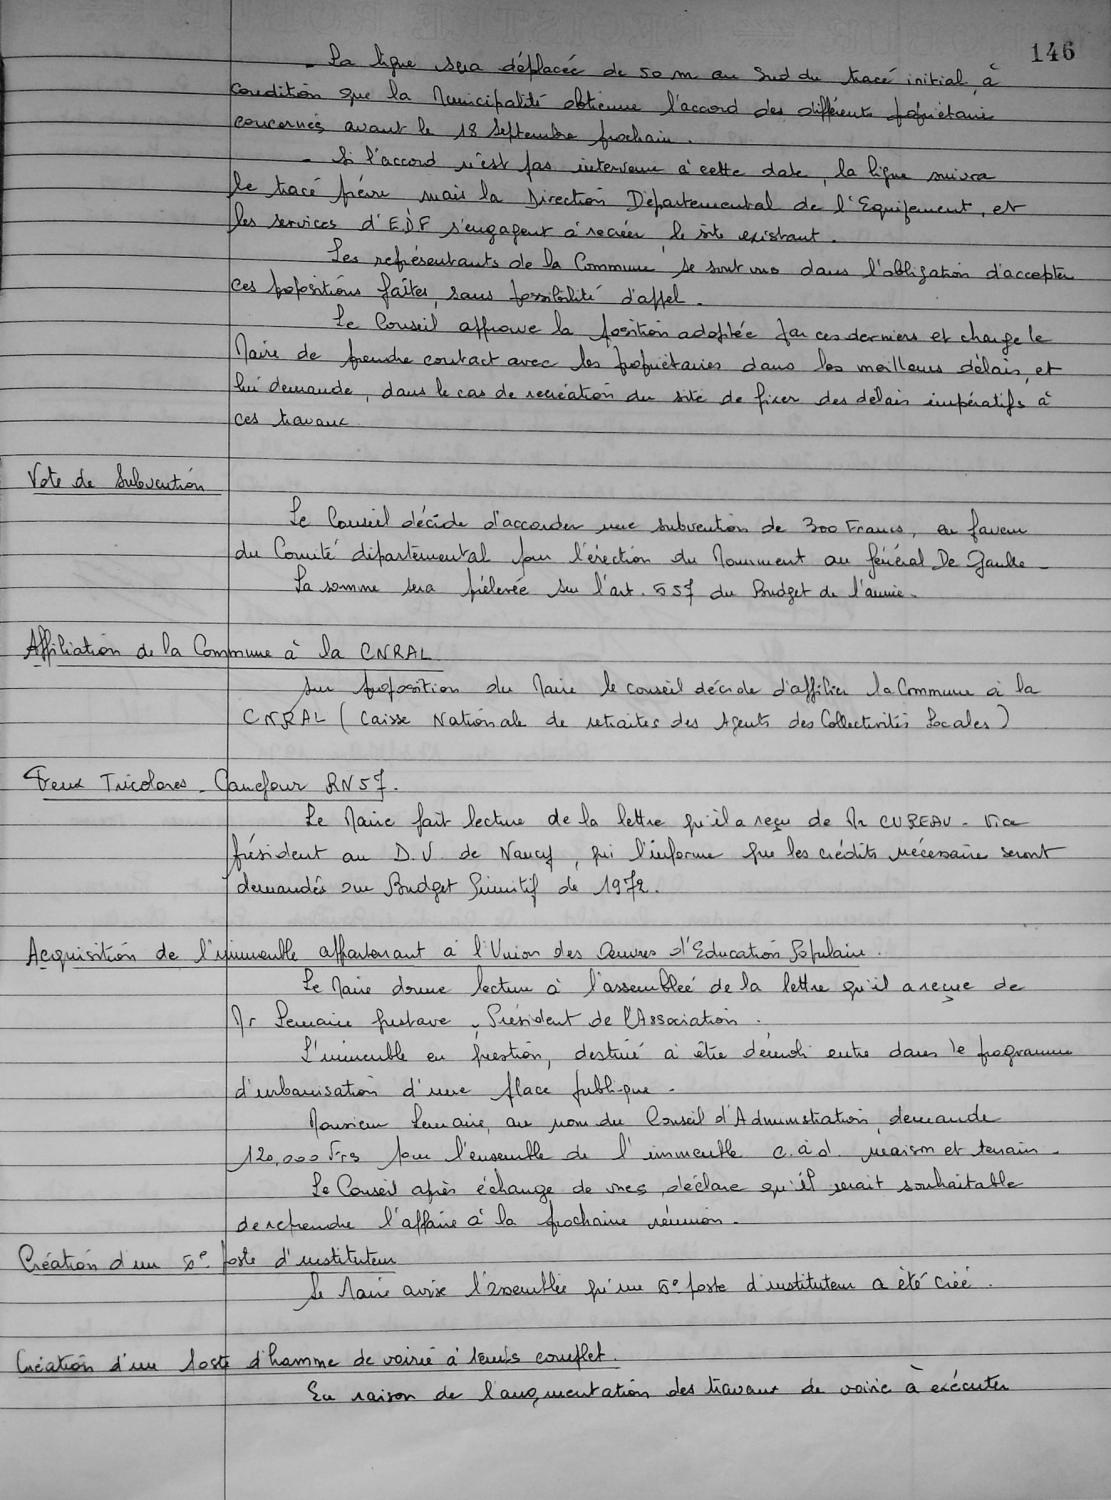 146
- La ligne sera déplacée de 50 m au Sud du tracé initial, à
condition que la Municipalité obtienne l'accord des différents propriétaire
concernés avant le 18 Septembre prochain.
- Si l'accord n'est pas intervenu à cette date, la ligne suivra
le tracé prévu mais la Direction Départementale de l'Equipement, et
les services d'EDF s'engagent à recréer le site existant.
Les représentants de la Commune se sont vus dans l'obligation d'accepter
ces propositions faites, sans possibilité d'appel.
Le Conseil approuve la position adoptée par ces derniers et charge le
Maire de prendre contact avec les propriétaires dans les meilleurs délais, et
lui demande, dans le cas de recréation du site de fixer des délais impératifs à
ces travaux
Vote de Subvention
Le Conseil décide d'accorder une subvention de 300 Francs, en faveur
du Comité départemental pour l'érection du Monument au Général De Gaulle.
La somme sera prélevée sur l'art. 657 du Budget de l'année.
Affiliation de la Commune à la CNRAL
Sur proposition du Maire le conseil décide d'affilier la Commune à la
CNRAL (Caisse Nationale de retraites des Agents des Collectivités Locales)
Feux Tricolores - Carrefour RN 57.
Le Maire fait lecture de la lettre qu'il a reçu de Mr CUREAU - Vice
président au D.U. de Nancy, qui l'informe que les crédits nécessaire seront
demandés au Budget Primitif de 1972.
Acquisition de l'immeuble appartenant à l'Union des Oeuvres d'Education Populaire.
Le Maire donne lecture à l'assemblée de la lettre qu'il a reçue de
Mr Lemaire Gustave - Président de l'Association.
L'immeuble en question, destiné à être démoli entre dans le programme
d'urbanisation d'une place publique.
Monsieur Lemaire, au nom du Conseil d'Administration, demande
120,000 Frs pour l'ensemble de l'immeuble c. à d. maison et terrain.
Le Conseil après échange de vues, déclare qu'il serait souhaitable
de reprendre l'affaire à la prochaine réunion.
Création d'un 5e poste d'instituteur
Le Maire avise l'Assemblée qu'un 5e poste d'instituteur a été créé.
Création d'un Poste d'homme de voirie à temps complet.
En raison de l'augmentation des travaux de voirie à exécuter